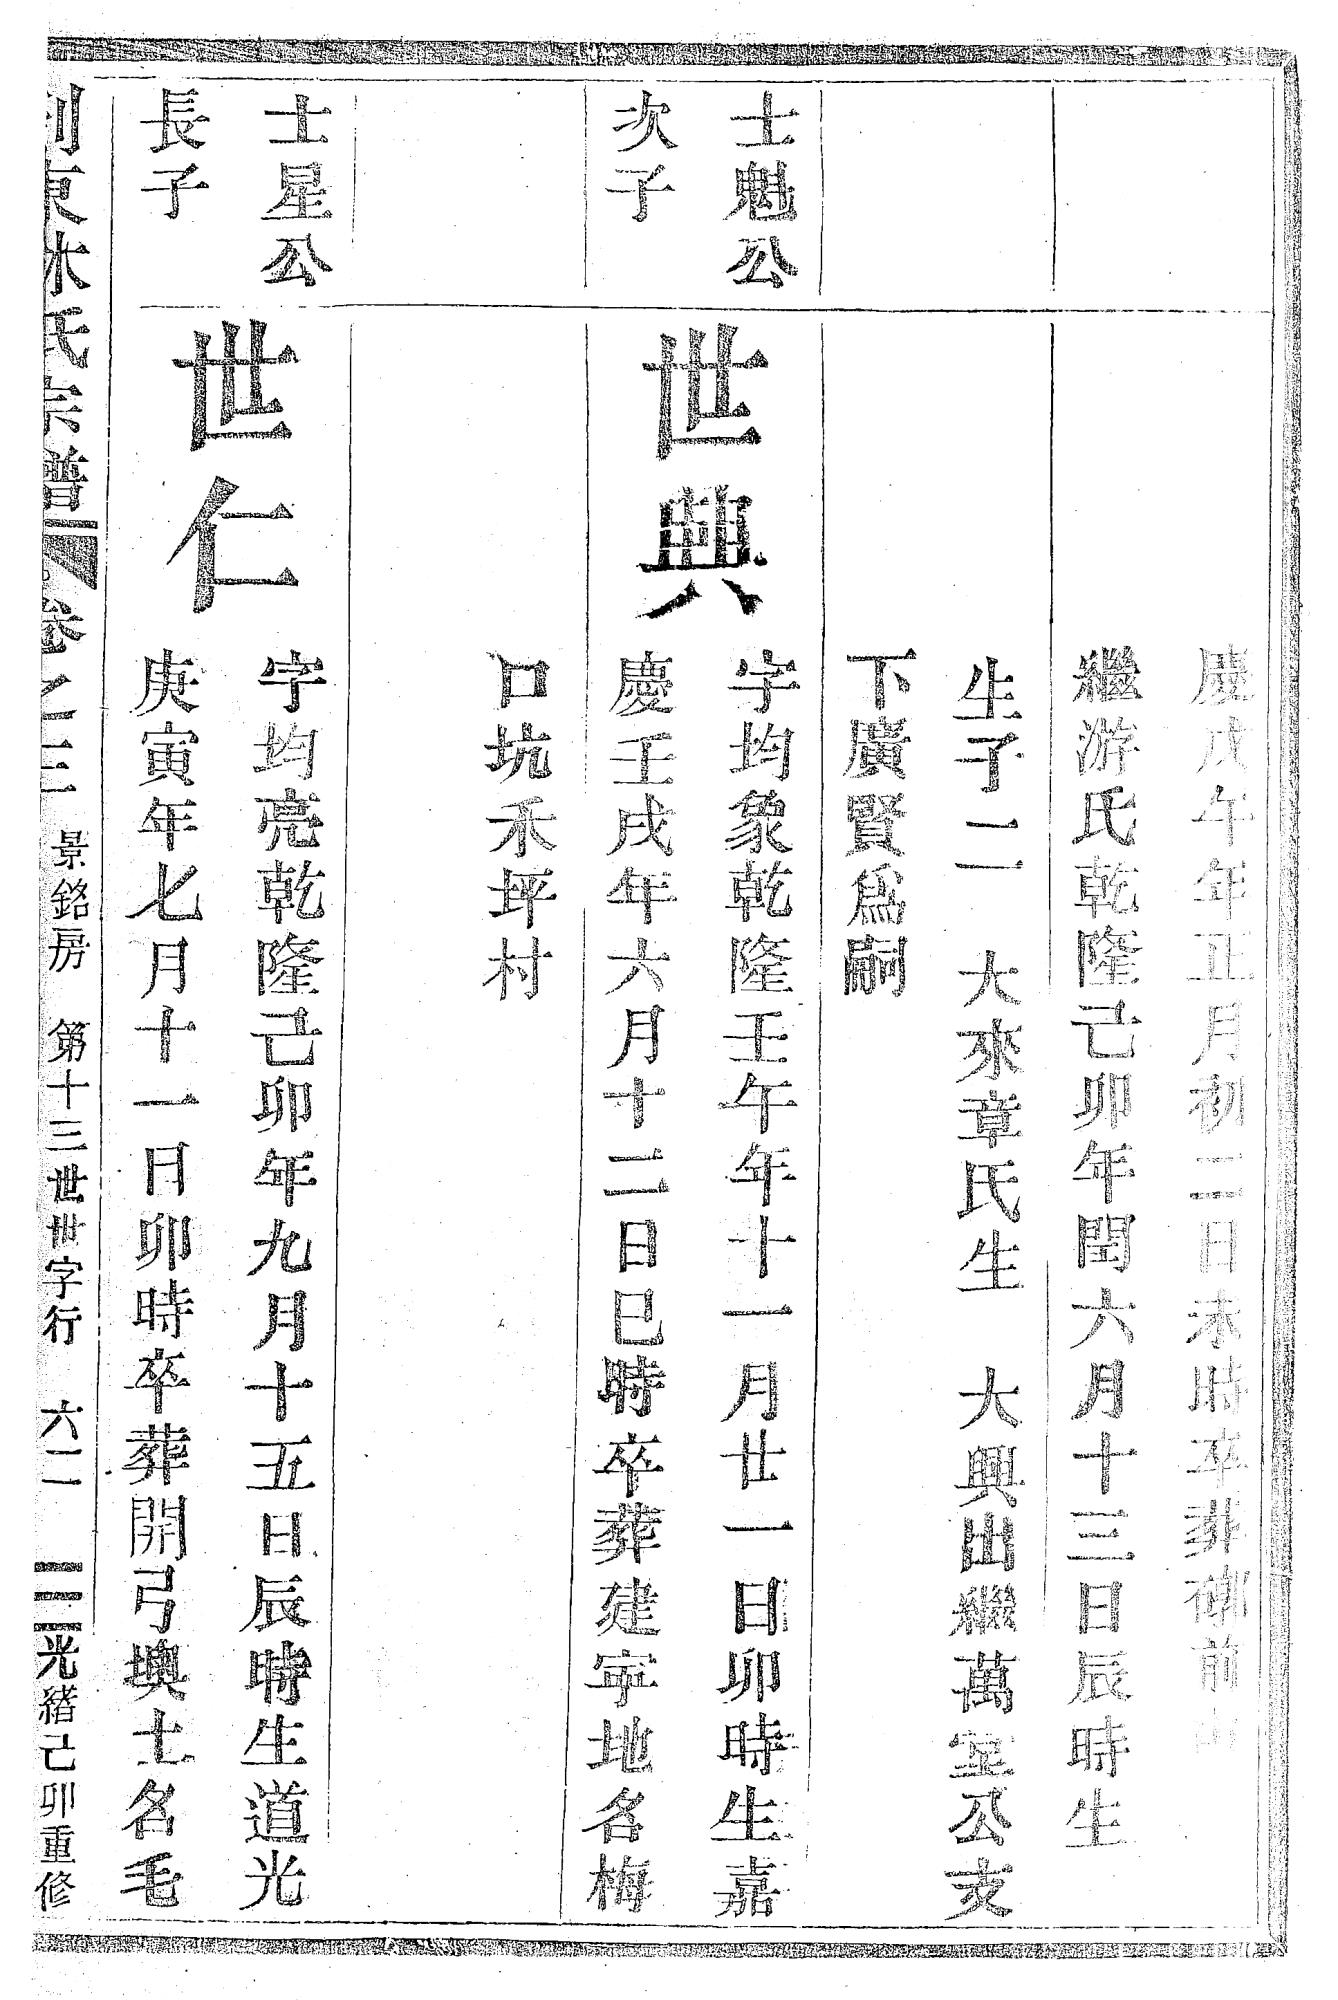 慶戊午年正月初二日未時卒葬
前山
繼游氏乾隆己卯年閏六月十三日辰時生
生子二　大來章氏生　大興出繼萬室公支
下廣賢爲嗣
士魁公
次子
世興
字均象乾隆壬午年十一月廿一日卯時生嘉
慶壬戌年六月十二日巳時卒葬建寧地名梅
口坑禾坪村
士星公
長子
世仁
字均亮乾隆己卯年九月十五日辰時生道光
庚寅年七月十一日卯時卒葬開弓墺土名毛
東林氏宗譜　卷之三　景銘房　第十三世世字行　六二　光緒己卯重修